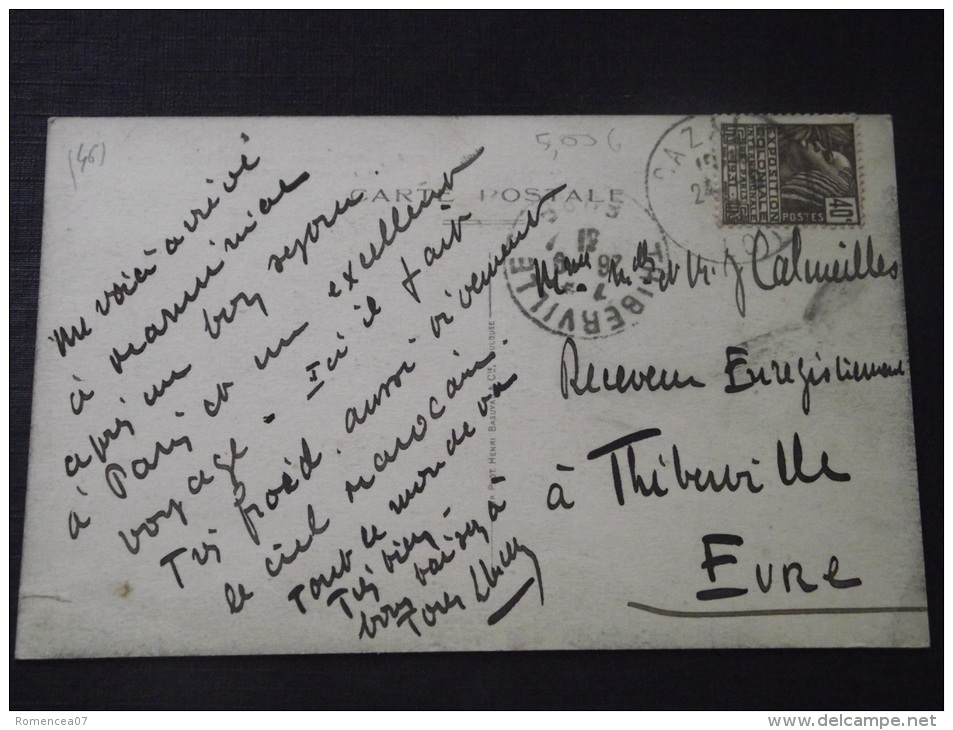 (46)
5,00 €
CARTE POSTALE
Me voici arrivé
à
après un bon séjour
à Paris et un excellent
voyage. Ici il fait
Très froid. aussi vivement
le ciel marocain.
Tout le monde va
Très bien.
bons baisers à
Tous
HENRI BASUYAU & Cie, TOULOUSE
CAZA
24
EXPOSITION
COLONIALE
INTERNATIONALE
POSTES
40c
THIBERVILLE
EURE
26
31
Mme Mlle et Mr J Calmeilles
Receveur Enregistrement
à Thiberville
Eure
Romencea07
www.delcampe.net